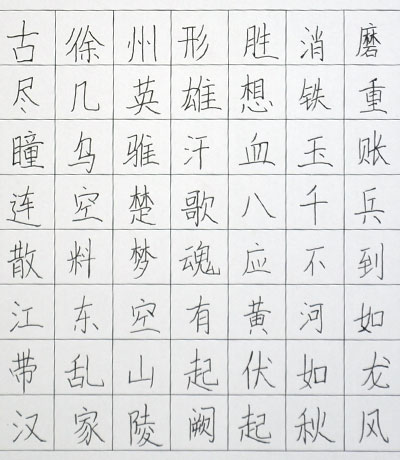 古徐州形胜消磨
尽几英雄想铁重
瞳乌骓汗血玉账
连空楚歌八千兵
散料梦魂应不到
江东空有黄河如
带乱山起伏如龙
汉家陵阙起秋风